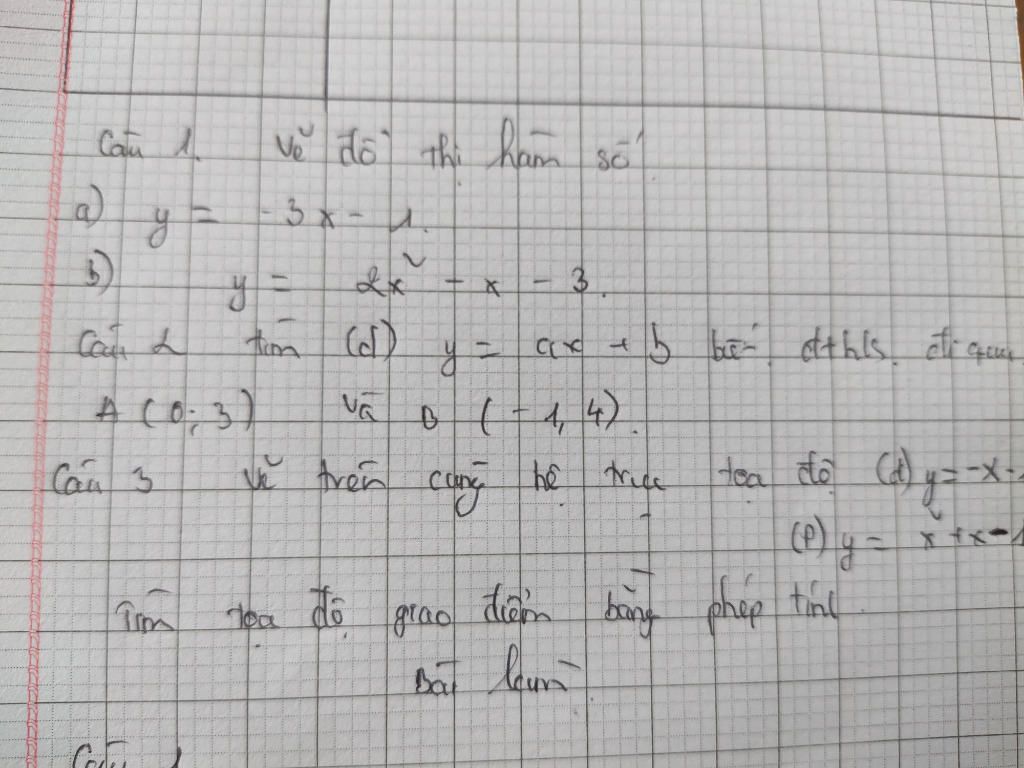 Câu 1. Vẽ đồ thị hàm số
a) y = -3x - 1.
b) y = 2x² - x - 3.
Câu 2 tìm (d) y = ax + b biết đthls. đi qua
A (0; 3) và B (-1, 4).
Câu 3 Vẽ trên cùng hệ trục tọa độ (d) y = -x -
(P) y = x² + x - 1
Tìm tọa độ giao điểm bằng phép tính.
Bài làm.
Câu 1